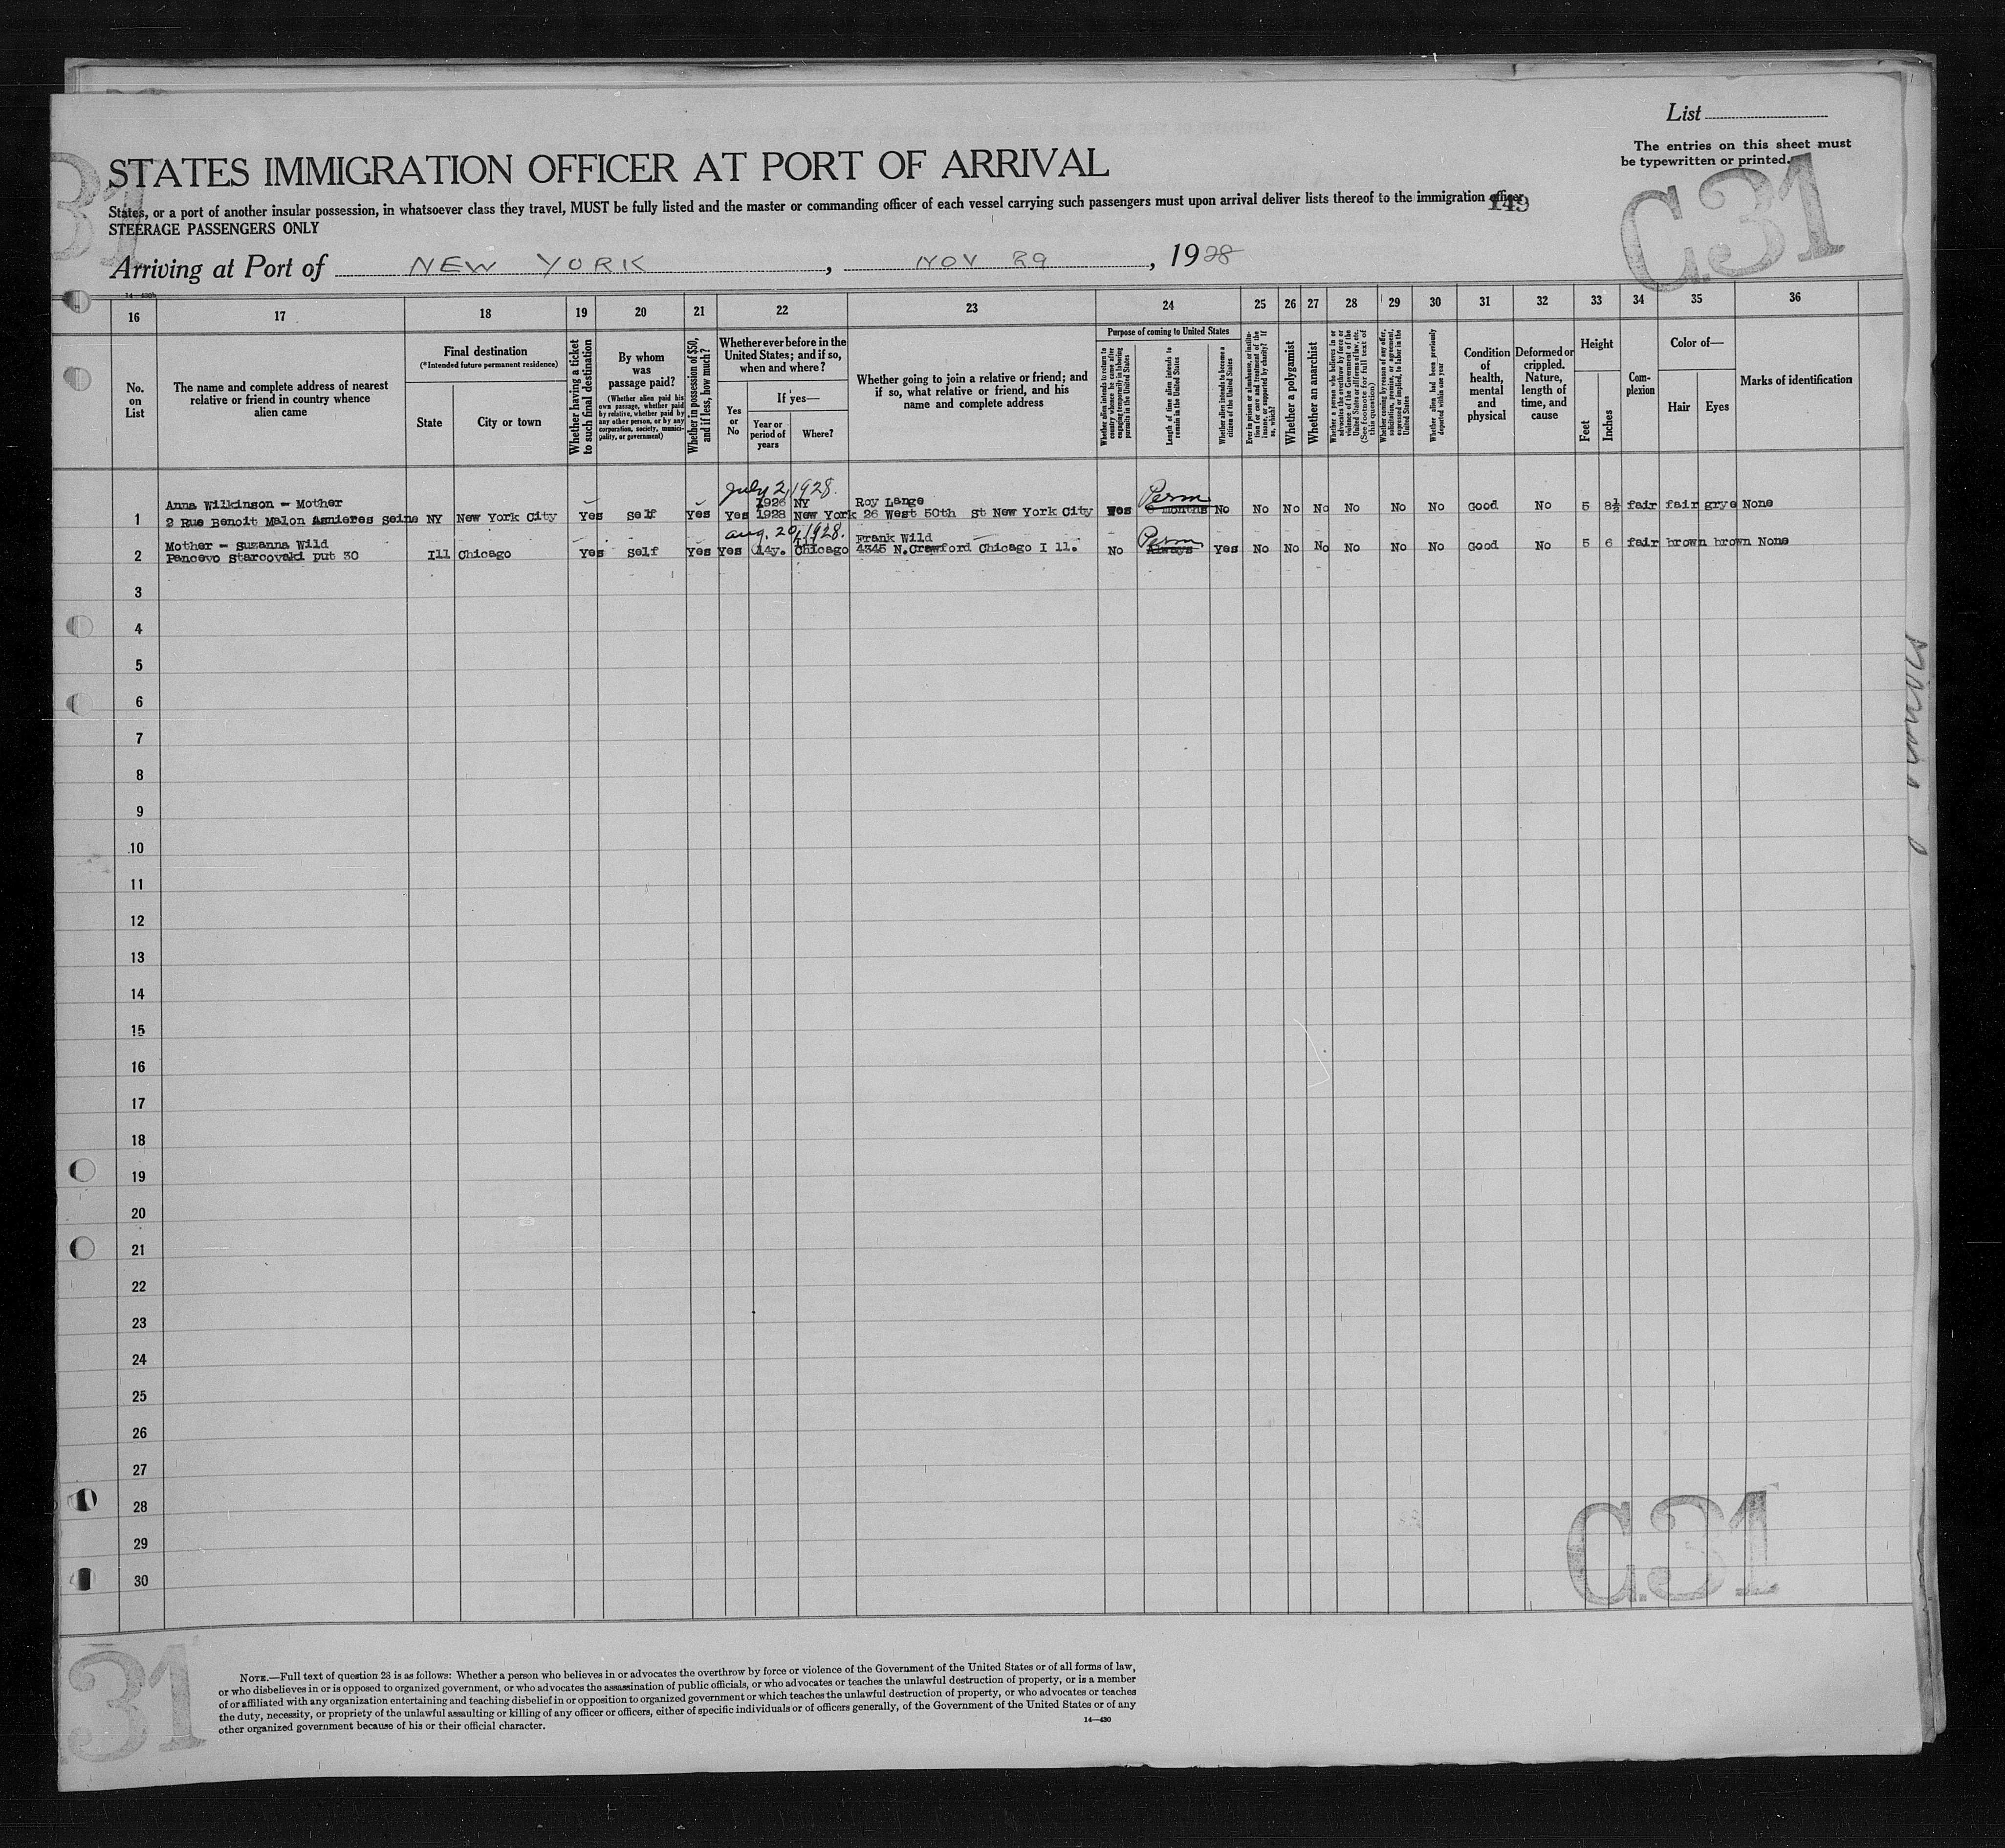 List
The entries on this sheet must
be typewritten or printed.
C.31
31
STATES IMMIGRATION OFFICER AT PORT OF ARRIVAL
149
States, or a port of another insular possession, in whatsoever class they travel, MUST be fully listed and the master or commanding officer of each vessel carrying such passengers must upon arrival deliver lists thereof to the immigration officer
STEERAGE PASSENGERS ONLY
Arriving at Port of NEW YORK, NOV 29, 1928
16 17 18 19 20 21 22 23 24 25 26 27 28 29 30 31 32 33 34 35 36
No. on List
The name and complete address of nearest relative or friend in country whence alien came
Final destination
(*Intended future permanent residence)
State
City or town
Whether having a ticket to such final destination
By whom was passage paid?
(Whether alien paid his own passage, whether paid by relative, whether paid by any other person, or by any corporation, society, municipality, or government)
Whether in possession of $50, and if less, how much?
Whether ever before in the United States; and if so, when and where?
Yes or No
If yes—
Year or period of years
Where?
Whether going to join a relative or friend; and if so, what relative or friend, and his name and complete address
Purpose of coming to United States
Whether alien intends to return to country whence he came after engaging temporarily in laboring pursuits in the United States
Length of time alien intends to remain in the United States
Whether alien intends to become a citizen of the United States
Ever in prison or almshouse, or institution for care and treatment of the insane, or supported by charity? If so, which?
Whether a polygamist
Whether an anarchist
Whether a person who believes in or advocates the overthrow by force or violence of the Government of the United States or all forms of law, etc. (See footnote for full text of this question)
Whether coming by reason of any offer, solicitation, promise, or agreement, expressed or implied, to labor in the United States
Whether alien had been previously deported within one year
Condition of health, mental and physical
Deformed or crippled. Nature, length of time, and cause
Height
Feet
Inches
Complexion
Color of—
Hair
Eyes
Marks of identification
July 2, 1928. Perm
Anna Wilkinson - Mother 1926 NY Roy Lange
1 2 Rue Benoit Malon Asnieres Seine NY New York City Yes Self Yes Yes 1928 New York 26 West 50th St New York City Yes 6 months No No No No No No No Good No 5 8½ fair fair grye None
Aug. 20, 1928. Perm
Mother - Suzanna Wild Ill Frank Wild
2 Pancevo Starcovaki put 30 Ill Chicago Yes Self Yes Yes 14y. Chicago 4345 N.Crawford Chicago I ll. No Always Yes No No No No No No Good No 5 6 fair brown brown None
3
4
5
6
7
8
9
10
11
12
13
14
15
16
17
18
19
20
21
22
23
24
25
26
27
28
29
30
C.31
31
NOTE.—Full text of question 28 is as follows: Whether a person who believes in or advocates the overthrow by force or violence of the Government of the United States or of all forms of law,
or who disbelieves in or is opposed to organized government, or who advocates the assassination of public officials, or who advocates or teaches the unlawful destruction of property, or is a member
of or affiliated with any organization entertaining and teaching disbelief in or opposition to organized government or which teaches the unlawful destruction of property, or who advocates or teaches
the duty, necessity, or propriety of the unlawful assaulting or killing of any officer or officers, either of specific individuals or of officers generally, of the Government of the United States or of any
other organized government because of his or their official character.
14—430